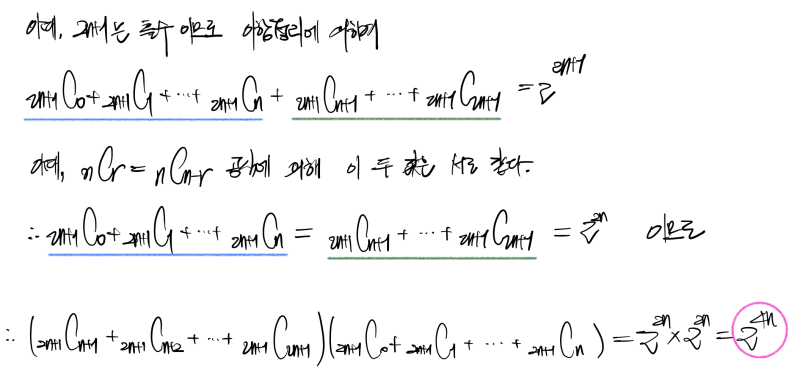 이때, 2n+1은 홀수 이므로 이항정리에 의하여
₂ₙ₊₁C₀ + ₂ₙ₊₁C₁ + ⋯ + ₂ₙ₊₁Cₙ + ₂ₙ₊₁Cₙ₊₁ + ⋯ + ₂ₙ₊₁C₂ₙ₊₁ = 2²ⁿ⁺¹
이때, ₙCᵣ = ₙCₙ₋ᵣ 공식에 의해 이 두 값은 서로 같다.
∴ ₂ₙ₊₁C₀ + ₂ₙ₊₁C₁ + ⋯ + ₂ₙ₊₁Cₙ = ₂ₙ₊₁Cₙ₊₁ + ⋯ + ₂ₙ₊₁C₂ₙ₊₁ = 2²ⁿ 이므로
∴ (₂ₙ₊₁Cₙ₊₁ + ₂ₙ₊₁Cₙ₊₂ + ⋯ + ₂ₙ₊₁C₂ₙ₊₁)(₂ₙ₊₁C₀ + ₂ₙ₊₁C₁ + ⋯ + ₂ₙ₊₁Cₙ) = 2²ⁿ × 2²ⁿ = 2⁴ⁿ